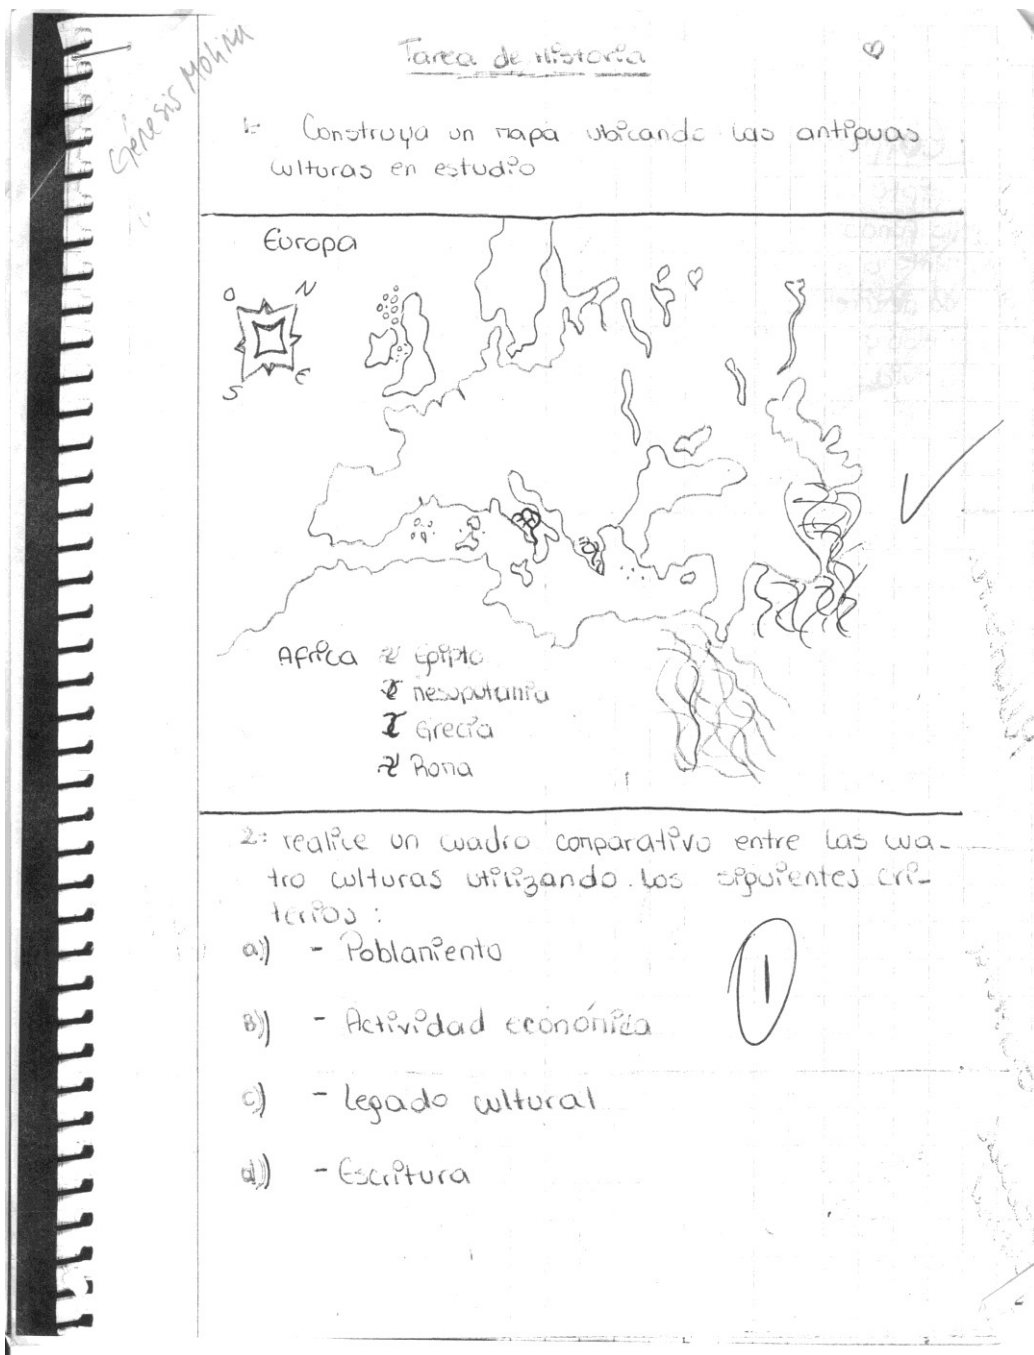 Génesis Molina
Tarea de Historia
1- Construya un mapa ubicando las antiguas
culturas en estudio
Europa
O N
S E
Africa Egipto
mesopotamia
Grecia
Roma
2- realice un cuadro comparativo entre las cua-
tro culturas utilizando los siguientes cri-
terios:
a) - Poblamiento
B) - Actividad económica
c) - Legado cultural
d) - Escritura
1